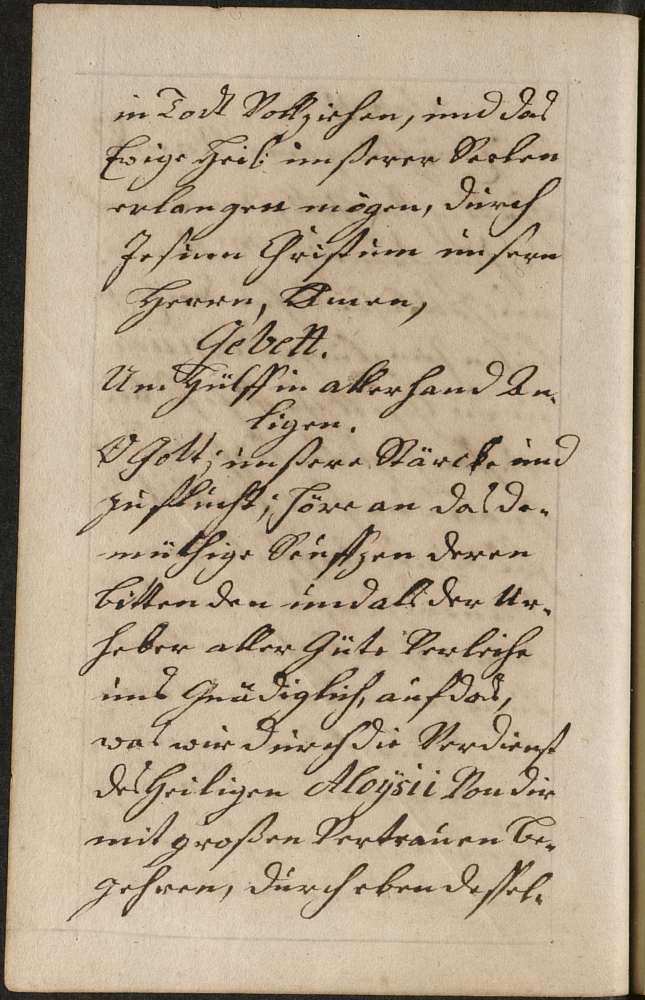 in Todt Vollziehen, und das
Ewige Heil: unserer Seelen
erlangen mögen, durch
Jesum Christum unsern
Herrn, Amen,
Gebett.
Um Hülff in allerhand An-
ligen.
O Gott; unsere Stärcke und
zuflucht; höre an das de-
müthige Seuffzen deren
bittenden und als der Ur-
heber aller Güte Verleihe
uns Gnädiglich, auf das,
was wir durch die Verdienst
des Heiligen Aloÿsii Von dir
mit großen Vertrauen be-
gehren, durch eben dessel-